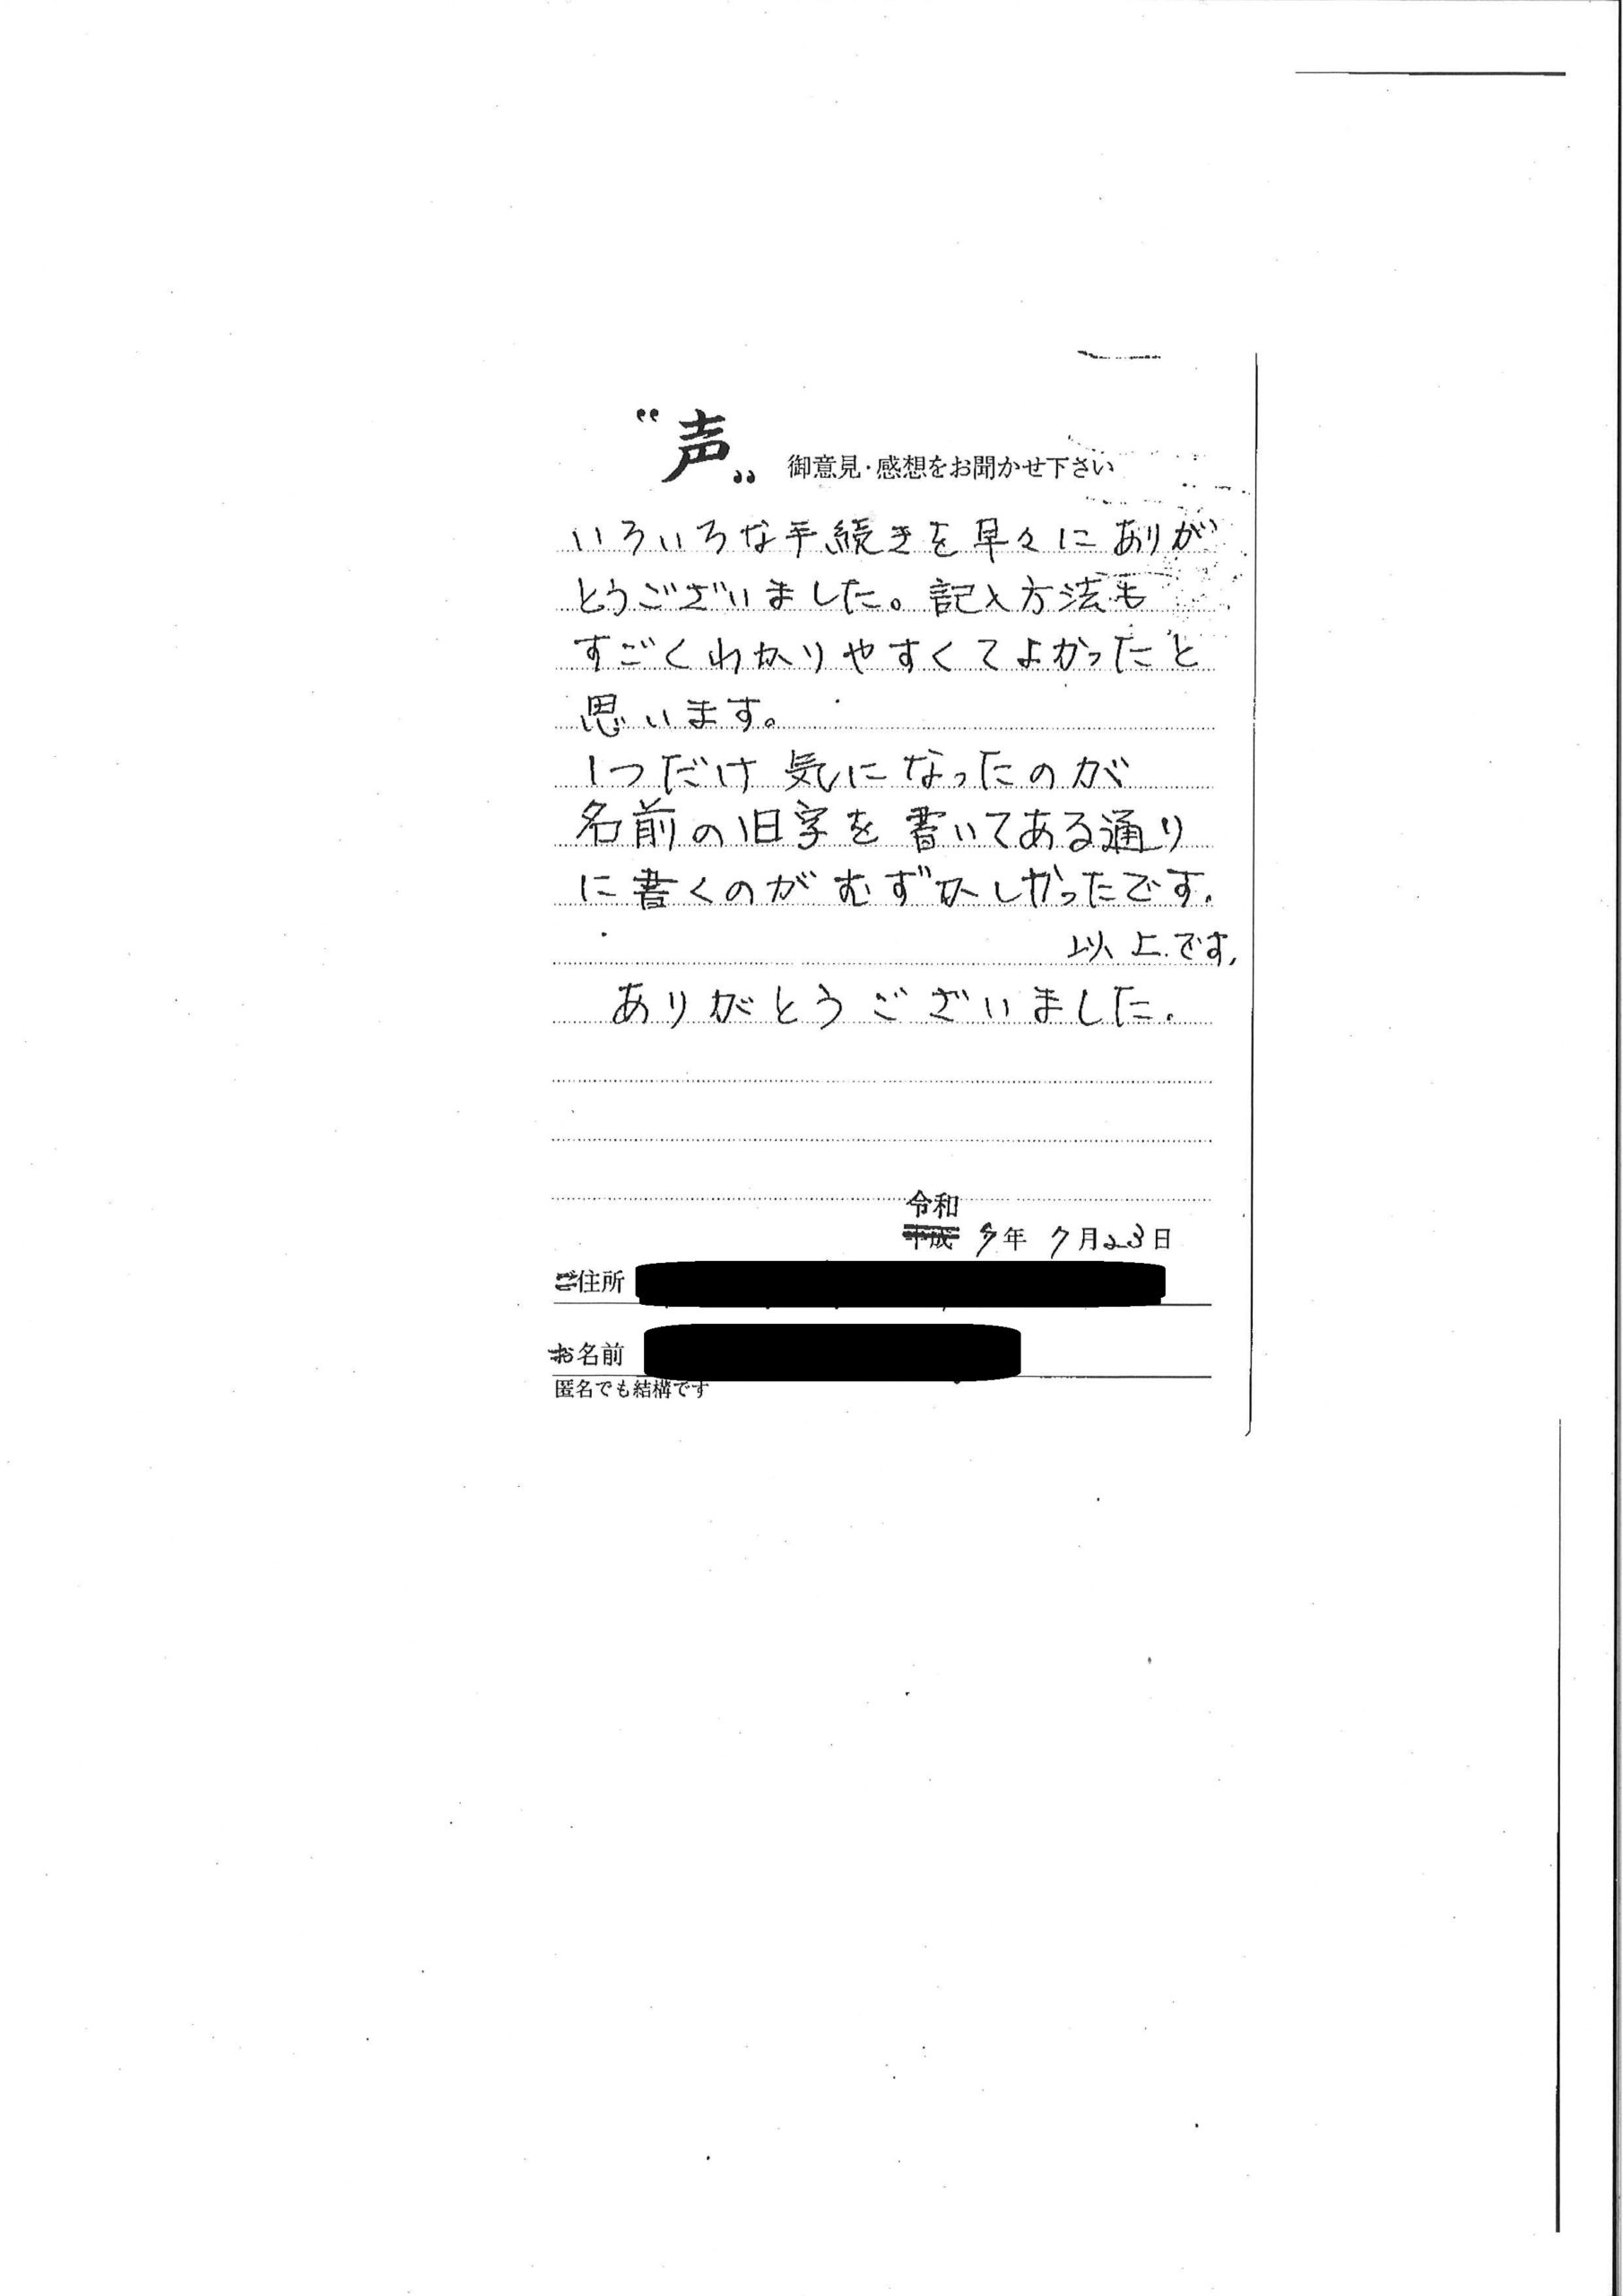 "声" 御意見・感想をお聞かせ下さい
いろいろな手続きを早々にありが
とうございました。記入方法も
すごくわかりやすくてよかったと
思います。
1つだけ気になったのが
名前の旧字を書いてある通り
に書くのがむずかしかったです。
以上です。
ありがとうございました。
令和
平成 年 7月23日
ご住所
お名前
匿名でも結構です